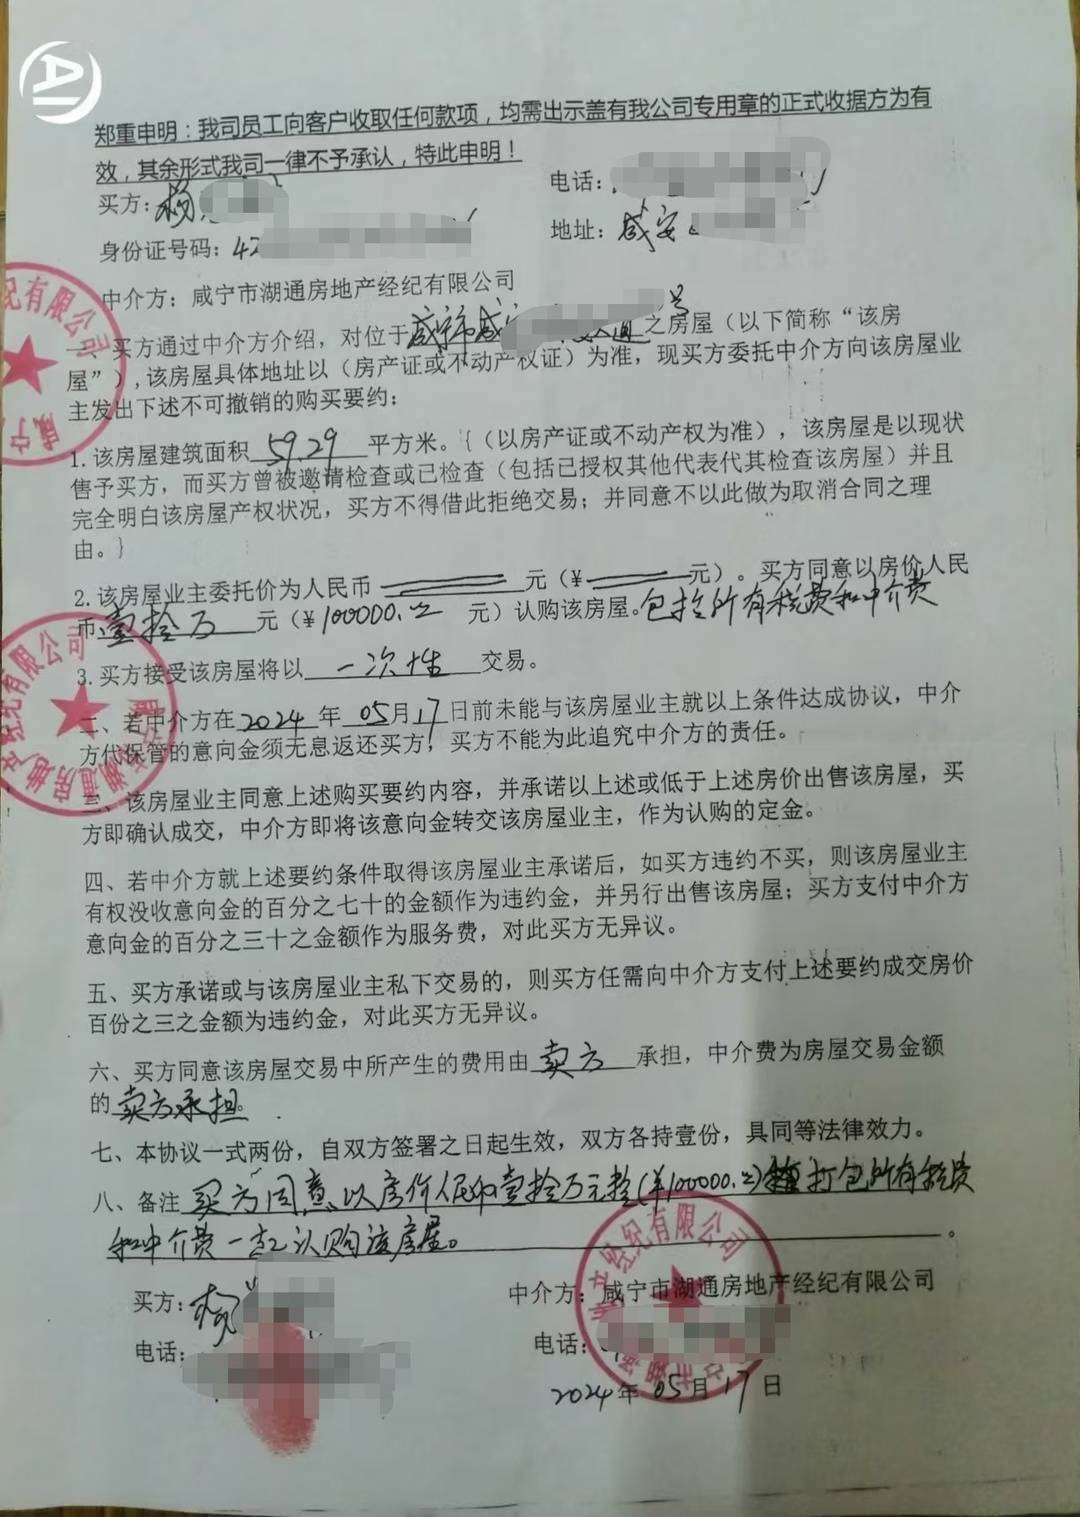 AI
郑重申明：我司员工向客户收取任何款项，均需出示盖有我公司专用章的正式收据方为有
效，其余形式我司一律不予承认，特此申明！
买方：杨
电话：
身份证号码：42
地址：咸安
中介方：咸宁市湖通房地产经纪有限公司
一、买方通过中介方介绍，对位于咸宁市咸 号之房屋（以下简称“该房
屋”），该房屋具体地址以（房产证或不动产权证）为准，现买方委托中介方向该房屋业
主发出下述不可撤销的购买要约：
1.该房屋建筑面积59.29平方米。{（以房产证或不动产权为准），该房屋是以现状
售予买方，而买方曾被邀请检查或已检查（包括已授权其他代表代其检查该房屋）并且
完全明白该房屋产权状况，买方不得借此拒绝交易；并同意不以此做为取消合同之理
由。}
2.该房屋业主委托价为人民币 元（¥ 元）。买方同意以房价人民
币壹拾万元（¥100000.00元）认购该房屋。包括所有税费和中介费
3.买方接受该房屋将以一次性交易。
二、若中介方在2024年05月17日前未能与该房屋业主就以上条件达成协议，中介
方代保管的意向金须无息返还买方，买方不能为此追究中介方的责任。
三、该房屋业主同意上述购买要约内容，并承诺以上述或低于上述房价出售该房屋，买
方即确认成交，中介方即将该意向金转交该房屋业主，作为认购的定金。
四、若中介方就上述要约条件取得该房屋业主承诺后，如买方违约不买，则该房屋业主
有权没收意向金的百分之七十的金额作为违约金，并另行出售该房屋；买方支付中介方
意向金的百分之三十之金额作为服务费，对此买方无异议。
五、买方承诺或与该房屋业主私下交易的，则买方任需向中介方支付上述要约成交房价
百份之三之金额为违约金，对此买方无异议。
六、买方同意该房屋交易中所产生的费用由卖方承担，中介费为房屋交易金额
的卖方承担。
七、本协议一式两份，自双方签署之日起生效，双方各持壹份，具同等法律效力。
八、备注买方同意以房价人民币壹拾万元整（¥100000.00）打包所有税费
和中介费一起认购该房屋。
买方：杨
中介方：咸宁市湖通房地产经纪有限公司
电话：
电话：
2024年05月17日